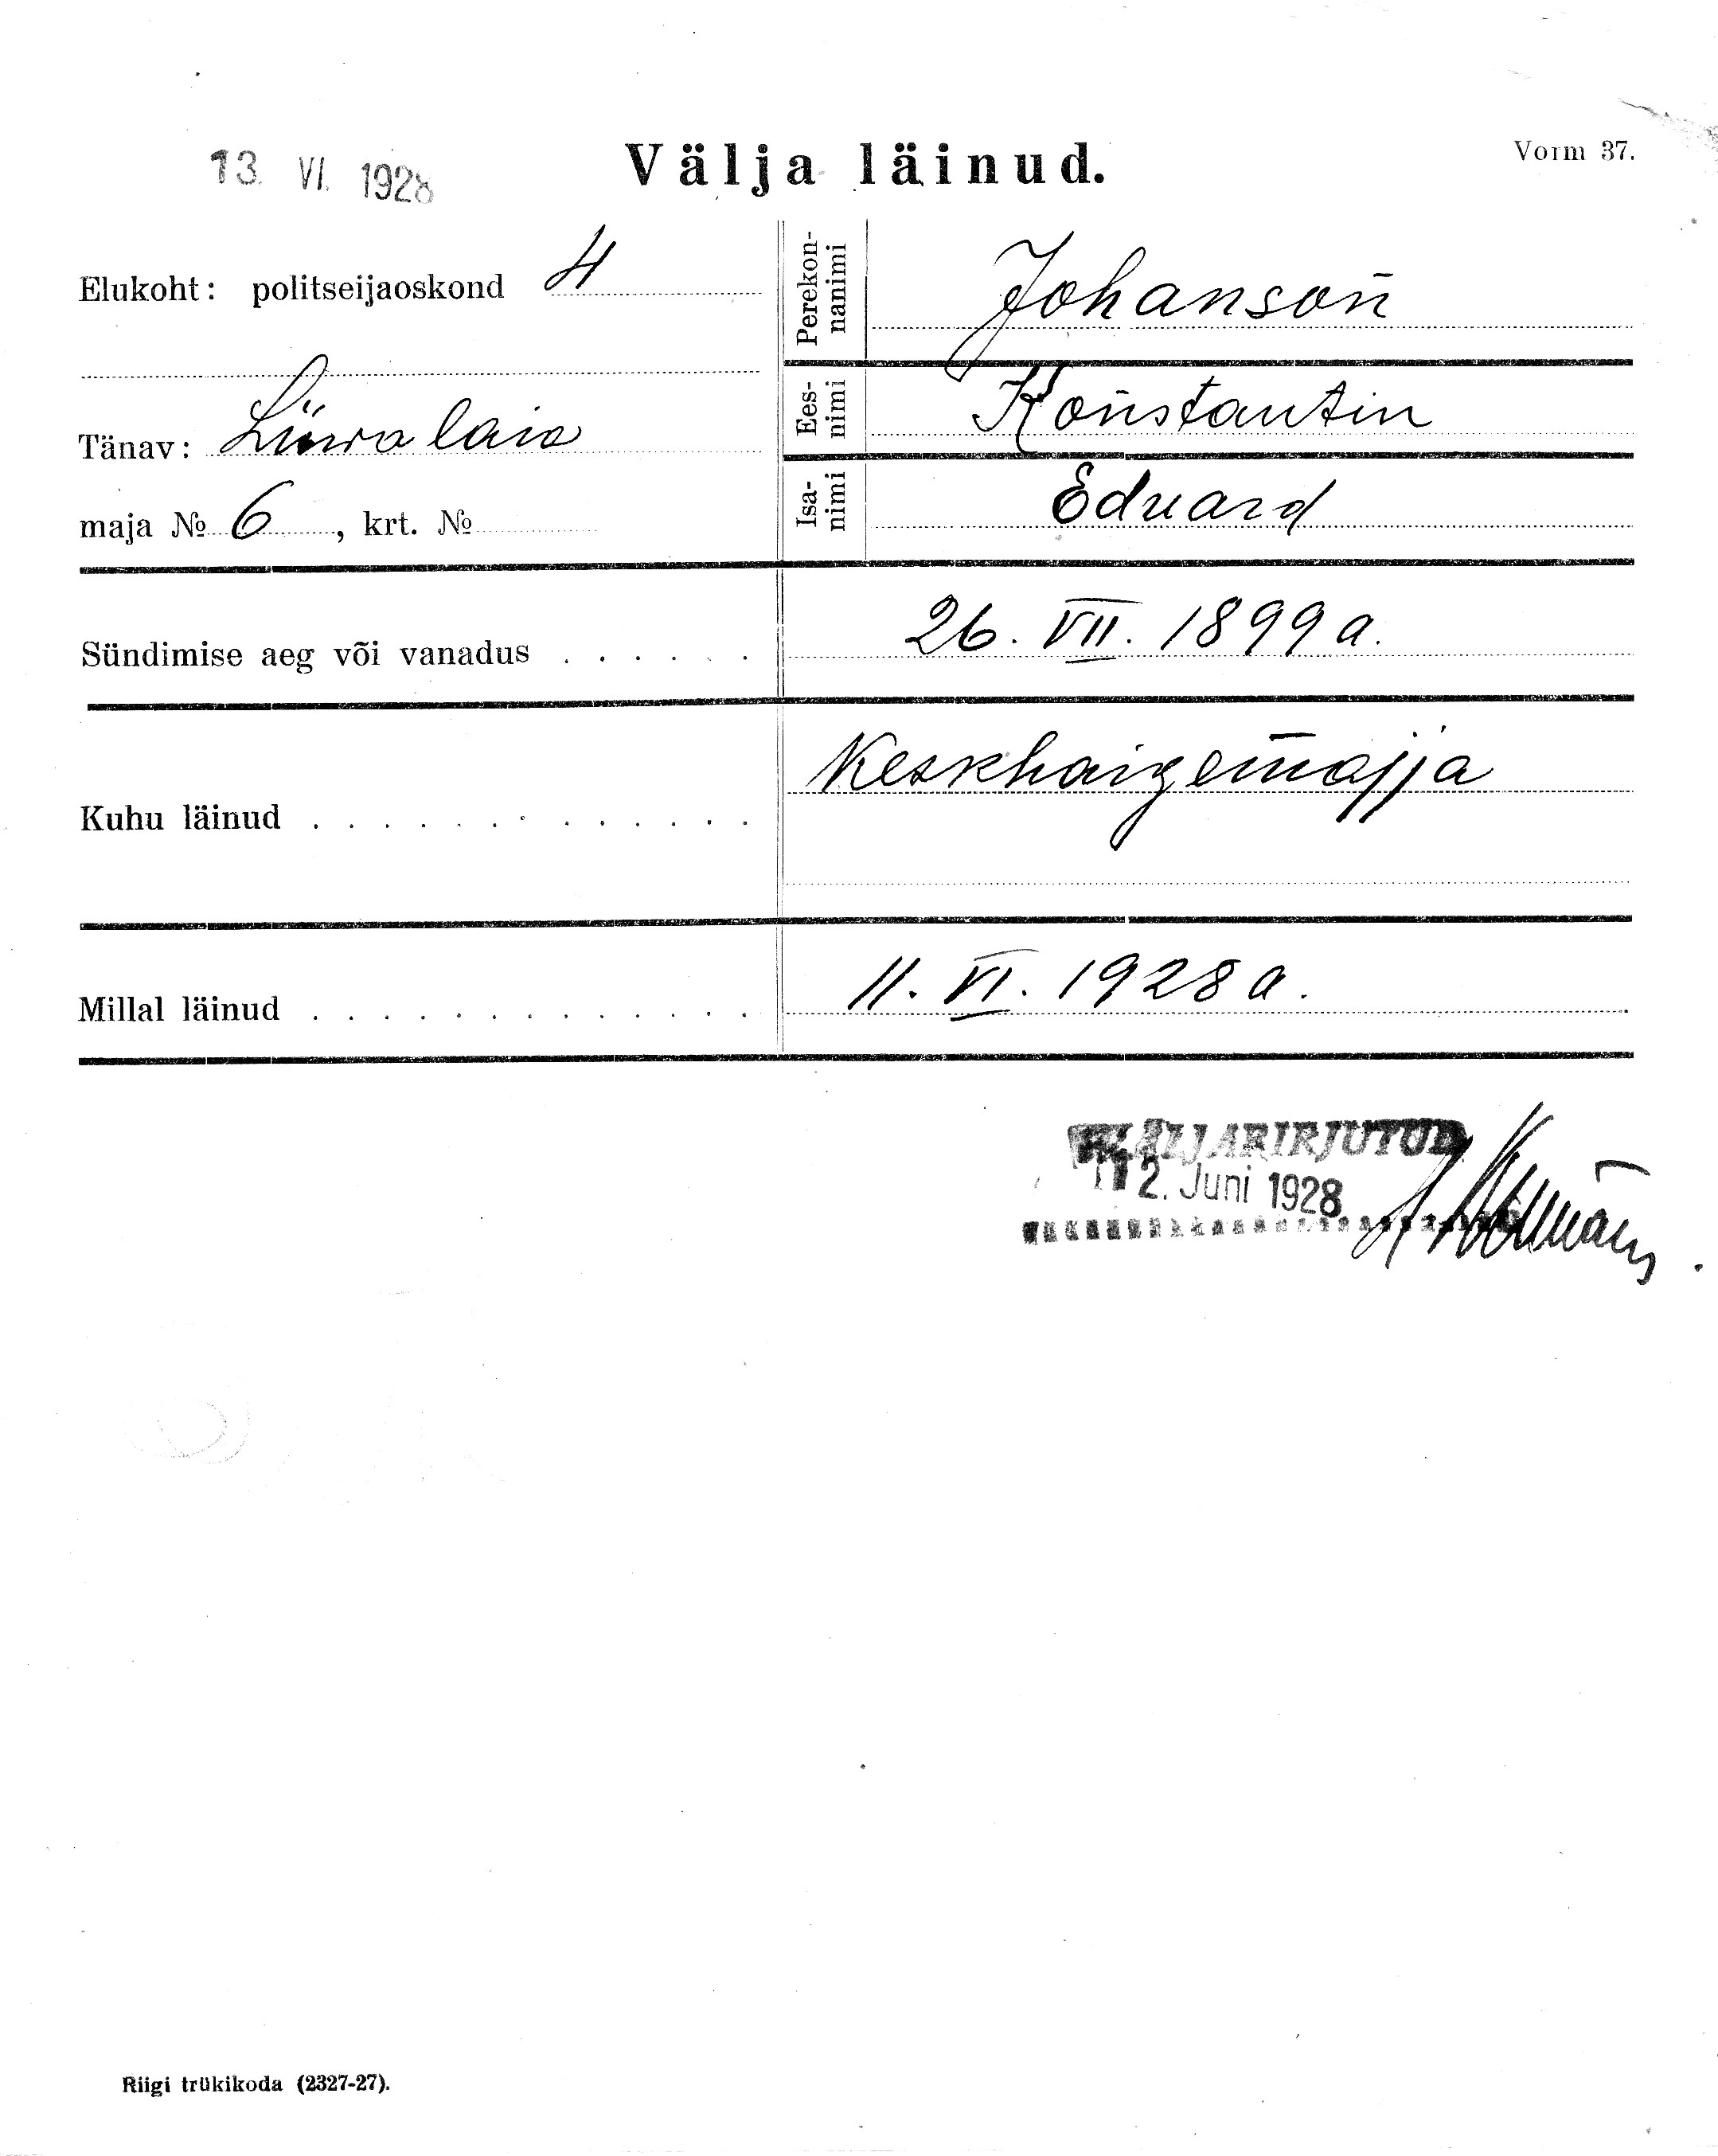 13. VI. 1928
Välja läinud.
Vorm 37.
Elukoht: politseijaoskond 4
Tänav: Liiwalaia
maja № 6, krt. №
Perekon-
nanimi
Johanson
Ees-
nimi
Konstantin
Isa-
nimi
Eduard
Sündimise aeg või vanadus . . . . . . 26. VII. 1899 a.
Kuhu läinud . . . . . . . . . . . . . Keskhaigemajja
Millal läinud . . . . . . . . . . . . . 11. VI. 1928 a.
VÄLJAKIRJUTUD
12. Juni 1928
Riigi trükikoda (2327-27).